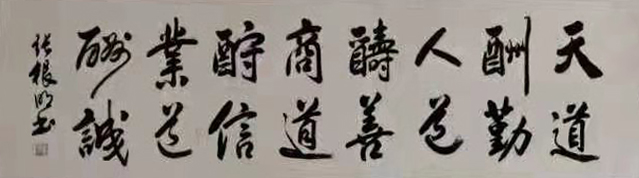 天道
酬勤
人道
醻善
商道
酧信
業道
酬誠
张根明书